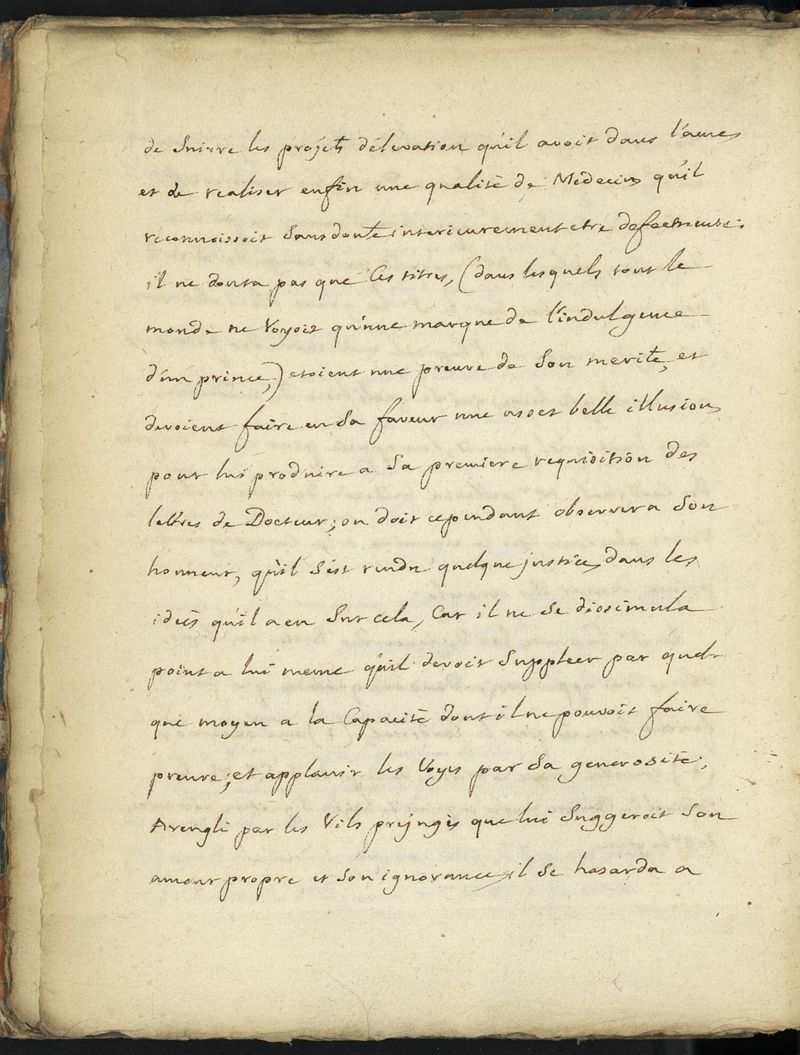 de suivre les projets d'elevation qu'il avoit dans l'ame,
et de realiser enfin une qualité de Medecin, qu'il
reconnoissoit sans doute interieurement etre defectueuse:
il ne douta pas que ces titres, (dans lesquels tout le
monde ne voyoit qu'une marque de l'indulgence
d'un prince,) etoient une preuve de son merite, et
devoient faire en sa faveur une assez belle illusion,
pour lui produire a sa premiere requisition des
lettres de Docteur; on doit cependant observer a son
honneur, qu'il s'est rendu quelque justice, dans les
ideés qu'il a eu sur cela, car il ne se dissimula
point a lui meme qu'il devoit suppleer par quel-
que moyen a la capacité dont il ne pouvoit faire
preuve; et applanir les voyes par sa generosité.
Aveuglé par les vils prejugés que lui suggeroit son
amour propre et son ignorance, il se hasarda a